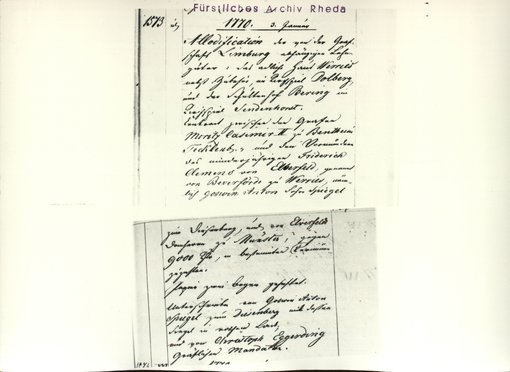 Fürstliches Archiv Rheda
1573 1770. 3. Januar
Allodification der von der Graf-
schaft Limburg abhängigen Lehn-
güter; des adlich Haus Werries
nebst Zubehör, im Kirchspiel Dolberg,
und der Schultenhof Bering im
Kirchspiel Sendenhorst.
Contract zwischen dem Grafen
Moritz Casimir II zu Bentheim
Tecklenb., und dem Vormünder
des minderjährigen Friderich
Clemens von Elverfeld, genannt
von Beverförde zu Werries, näm-
lich Goswin Anton Spiegel
zum Desenberg, und von Elverfeld
Domherrn zu Münster, gegen
9000 in bestimmten Terminen
zu zahlen.
Papier zwei Bogen geheftet.
Unterschrieben von Goswin Anton
Spiegel zum Desenberg mit dessen
Siegel in rothem Lack,
und von Christoph Eggerding
Gräflichem Mandatar.